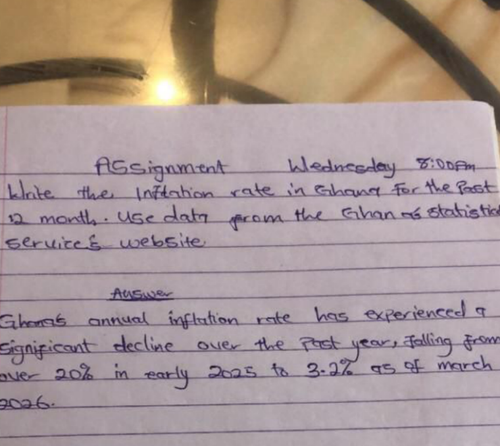 Assignment Wednesday 8:00am
Write the Inflation rate in Ghana for the Past
12 month. Use data from the Ghanas statistic
services website
Answer
Ghanas annual inflation rate has experienced a
significant decline over the Past year, falling from
over 20% in early 2025 to 3.2% as of march
2026.